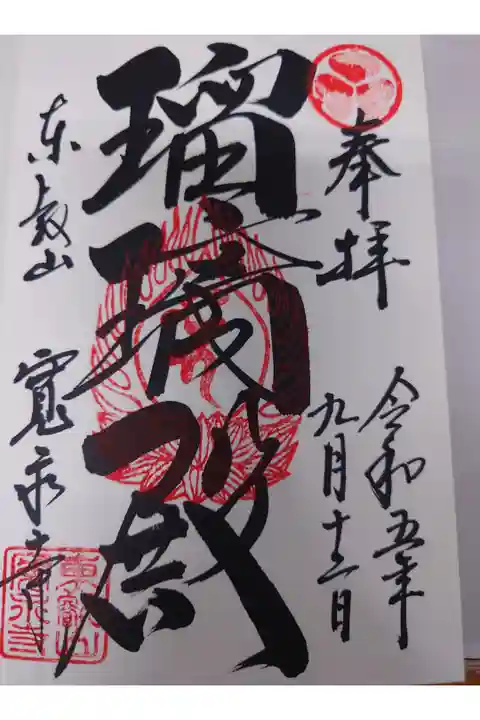 奉拝
令和五年
九月十二日
瑠璃殿
東叡山
寛永寺